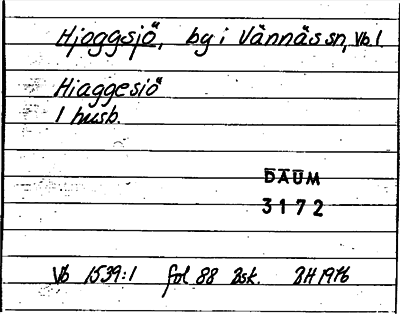 Hjoggsjö, by i Vännäs sn, Vb l.
Hiaggesiö
1 husb.
DAUM
3172
Vb 1539:1 fol 88 Bsk. BH 1976